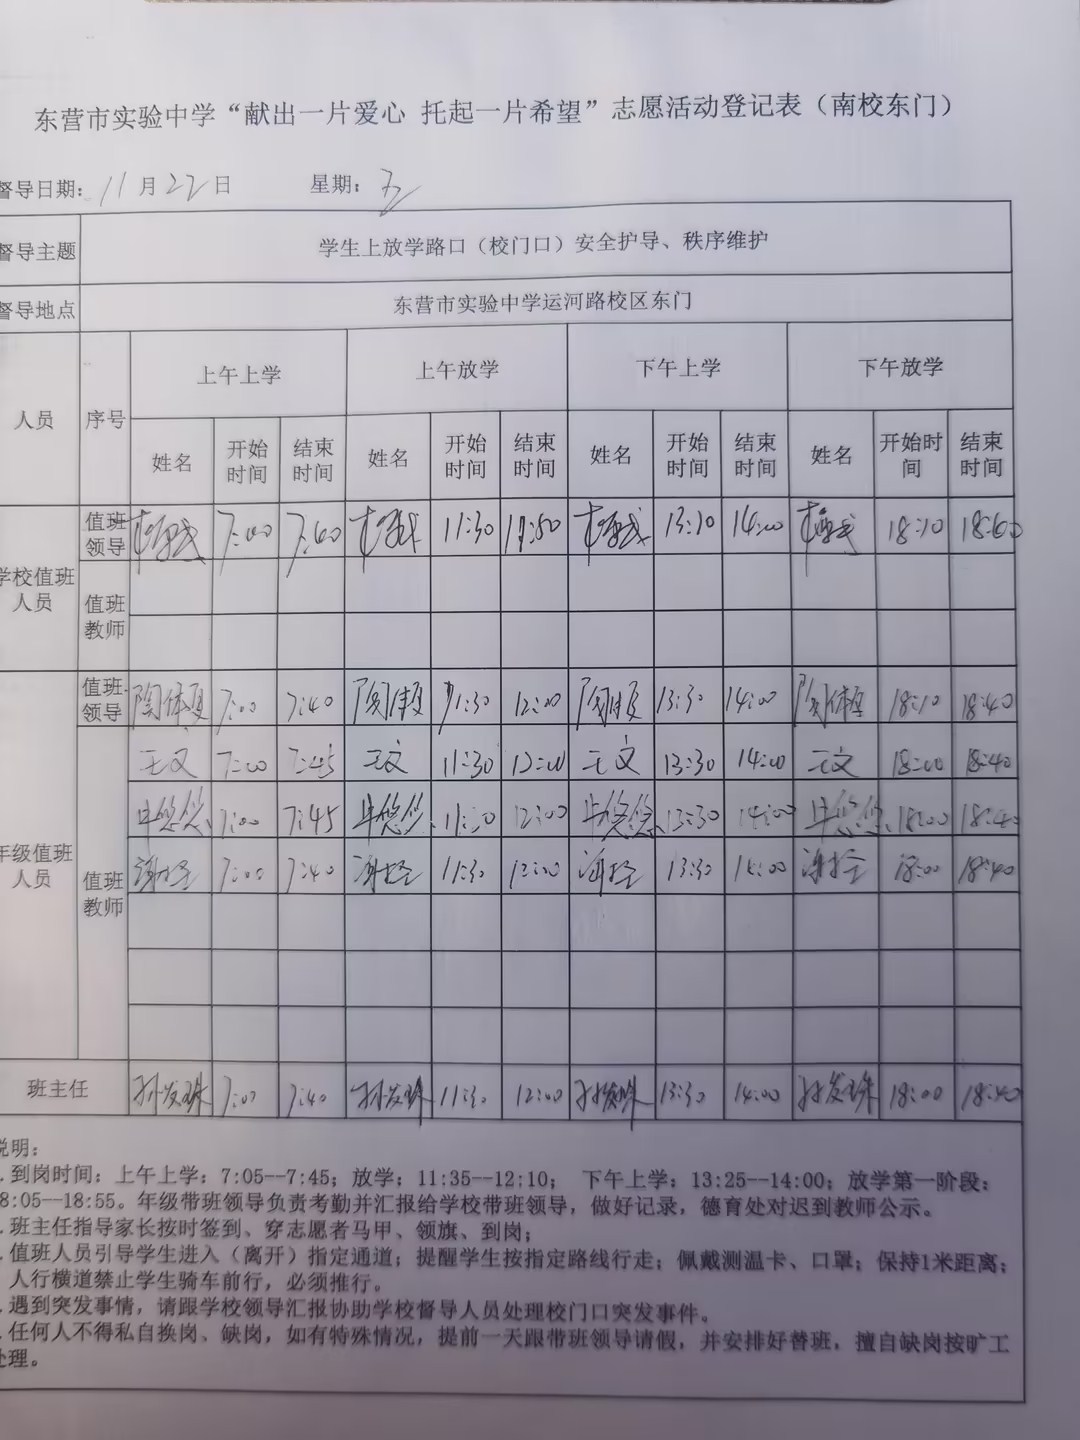 东营市实验中学“献出一片爱心 托起一片希望”志愿活动登记表（南校东门）
督导日期：11月22日 星期：五
督导主题 学生上放学路口（校门口）安全护导、秩序维护
督导地点 东营市实验中学运河路校区东门
人员 序号 上午上学 上午放学 下午上学 下午放学
姓名 开始时间 结束时间 姓名 开始时间 结束时间 姓名 开始时间 结束时间 姓名 开始时间 结束时间
学校值班人员 值班领导 7:00 7:40 11:30 11:50 13:10 14:00 18:10
值班教师
年级值班人员 值班领导 7:00 7:40 11:30 12:00 13:30 14:00 18:10 18:40
值班教师 王文 7:00 7:45 王文 11:30 12:00 王文 13:30 14:00 王文 18:00 18:40
牛悠悠 7:00 7:45 牛悠悠 11:30 12:00 牛悠悠 13:30 14:00 牛悠悠 18:00 18:40
7:00 7:40 11:30 12:00 13:30 14:00 18:00 18:40
班主任 7:00 7:40 11:30 12:00 13:30 14:00 18:00 18:40
说明：
.到岗时间：上午上学：7:05--7:45；放学；11:35--12:10； 下午上学：13:25--14:00；放学第一阶段：
8:05--18:55。年级带班领导负责考勤并汇报给学校带班领导，做好记录，德育处对迟到教师公示。
.班主任指导家长按时签到、穿志愿者马甲、领旗、到岗；
.值班人员引导学生进入（离开）指定通道；提醒学生按指定路线行走；佩戴测温卡、口罩；保持1米距离；
人行横道禁止学生骑车前行，必须推行。
.遇到突发事情，请跟学校领导汇报协助学校督导人员处理校门口突发事件。
.任何人不得私自换岗、缺岗，如有特殊情况，提前一天跟带班领导请假，并安排好替班，擅自缺岗按旷工
处理。